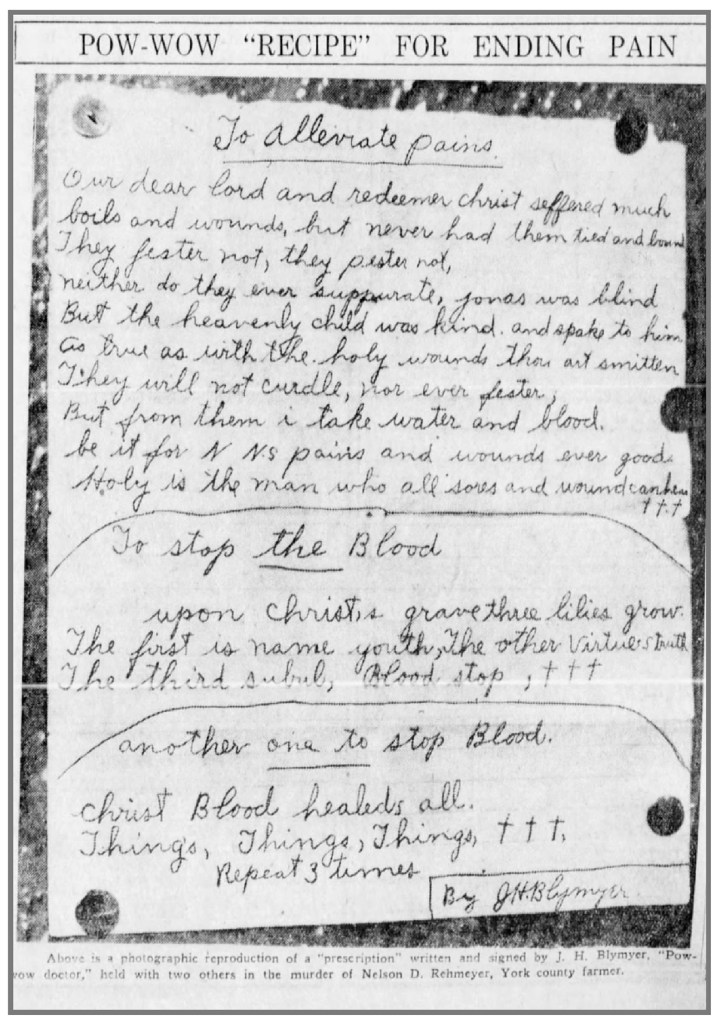 POW-WOW "RECIPE" FOR ENDING PAIN
To Alleviate pains.
Our dear lord and redeemer christ seffered much
boils and wounds, but never had them tied and bound
They fester not, they pester not,
neither do they ever suppurate, jonas was blind
But the heavenly child was kind. and spake to him
as true as with the holy wounds thou art smitten
They will not curdle, nor ever fester,
But from them i take water and blood.
be it for N N.s pains and wounds ever good.
Holy is the man who all sores and wound can heal
†††
To stop the Blood
upon christ,s grave three lilies grow.
The first is name youth, The other Virtue,s truth
The third subul, Blood stop, †††
another one to stop Blood.
christ Blood healeds all.
Things, Things, Things, †††.
Repeat 3 times
By J.H.Blymyer.
Above is a photographic reproduction of a "prescription" written and signed by J. H. Blymyer, "Pow-
wow doctor," held with two others in the murder of Nelson D. Rehmeyer, York county farmer.